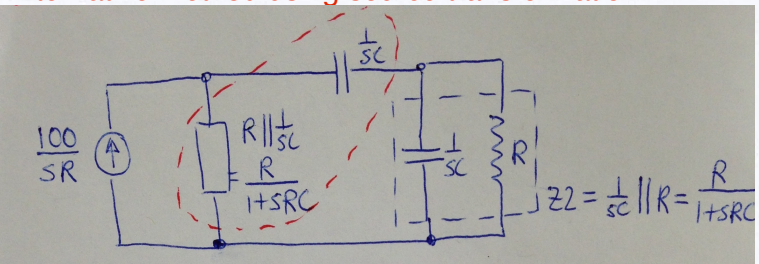 1/SC
100/SR
R||1/SC
= R/1+SRC
1/SC
R
Z2 = 1/SC || R = R/1+SRC